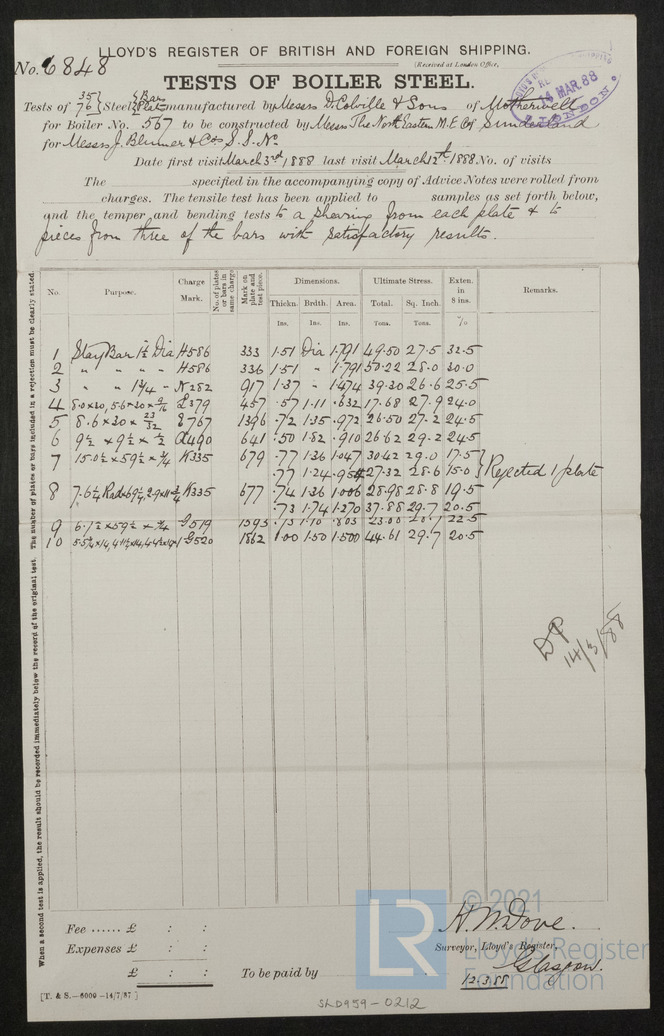 No. 6848
LLOYD'S REGISTER OF BRITISH AND FOREIGN SHIPPING.
(Received at London Office,
14 MAR. 88
LONDON.
TESTS OF BOILER STEEL.
Tests of 35 76 Steel Bars Plates manufactured by Messrs D. Colville & Sons of Motherwell
for Boiler No. 567 to be constructed by Messrs The North Eastern M. E. Coy Sunderland
for Messrs J. Blumer & Co's S. S. No
Date first visit March 3rd 1888 last visit March 12th 1888. No. of visits
The specified in the accompanying copy of Advice Notes were rolled from
charges. The tensile test has been applied to samples as set forth below,
and the temper and bending tests to a shearing from each plate & to
pieces from three of the bars with satisfactory results.
When a second test is applied, the result should be recorded immediately below the record of the original test. The number of plates or bars included in a rejection must be clearly stated.
No. Purpose. Charge Mark. No. of plates or bars in same charge Mark on plate and test piece. Dimensions. Ultimate Stress. Exten. in 8 ins. Remarks.
Thickn. Brdth. Area. Total. Sq. Inch.
Ins. Ins. Ins. Tons. Tons. %
1 Stay Bar 1½ Dia H586 333 1.51 Dia 1.791 49.50 27.5 32.5
2 " " " " H586 336 1.51 " 1.791 50.22 28.0 30.0
3 " " 1¼ - N282 917 1.37 " 1.474 39.30 26.6 25.5
4 8.0 x 30, 5.6 x 30 x 9/16 £379 457 .57 1.11 .632 17.68 27.9 24.0
5 8.6 x 30 x 23/32 E767 1396 .72 1.35 .972 26.50 27.2 24.5
6 9½ x 9½ x ½ a490 641 .50 1.82 .910 26.62 29.2 24.5
7 15.0½ x 59½ x ¾ K335 679 .77 1.36 1.047 30.42 29.0 17.5
.77 1.24 .954 27.32 28.6 15.0 Rejected 1 plate
8 7.6¼ Rad K335 677 .74 1.36 1.006 28.98 28.8 19.5
.73 1.74 1.270 37.88 29.7 20.5
9 6.1½ x 59½ x ¾ G519 1595 .73 1.10 .803 23.00 22.5
10 G520 1862 1.00 1.50 1.500 44.61 29.7 20.5
DP
14/3/88
Fee ...... £ : :
Expenses £ : :
£ : :
To be paid by
H. W. Dove.
Surveyor, Lloyd's Register,
Glasgow.
12.3.88
[T. & S.—6000—14/7/87]
SLD959-0212
LR
© 2021
Lloyd's Register
Foundation